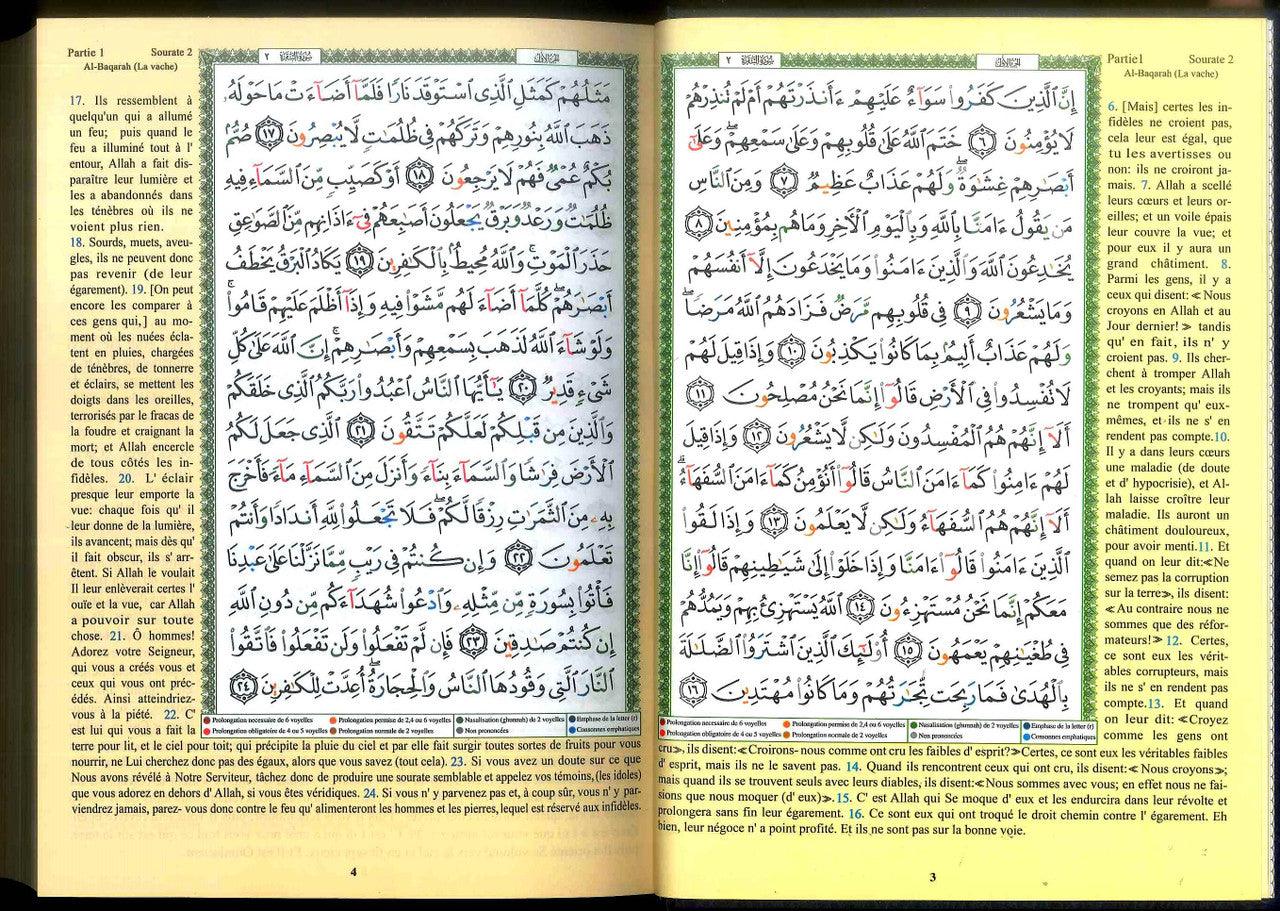 Partie1 Sourate 2
Al-Baqarah (La vache)
٢ سورة البقرة الجزء الأول
إِنَّ ٱلَّذِينَ كَفَرُوا۟ سَوَآءٌ عَلَيْهِمْ ءَأَنذَرْتَهُمْ أَمْ لَمْ تُنذِرْهُمْ
لَا يُؤْمِنُونَ ٦ خَتَمَ ٱللَّهُ عَلَىٰ قُلُوبِهِمْ وَعَلَىٰ سَمْعِهِمْ ۖ وَعَلَىٰٓ
أَبْصَٰرِهِمْ غِشَٰوَةٌ ۖ وَلَهُمْ عَذَابٌ عَظِيمٌ ٧ وَمِنَ ٱلنَّاسِ
مَن يَقُولُ ءَامَنَّا بِٱللَّهِ وَبِٱلْيَوْمِ ٱلْأَخِرِ وَمَا هُم بِمُؤْمِنِينَ ٨
يُخَٰدِعُونَ ٱللَّهَ وَٱلَّذِينَ ءَامَنُوا۟ وَمَا يَخْدَعُونَ إِلَّآ أَنفُسَهُمْ
وَمَا يَشْعُرُونَ ٩ فِى قُلُوبِهِم مَّرَضٌ فَزَادَهُمُ ٱللَّهُ مَرَضًا ۖ
وَلَهُمْ عَذَابٌ أَلِيمٌۢ بِمَا كَانُوا۟ يَكْذِبُونَ ١٠ وَإِذَا قِيلَ لَهُمْ
لَا تُفْسِدُوا۟ فِى ٱلْأَرْضِ قَالُوٓا۟ إِنَّمَا نَحْنُ مُصْلِحُونَ ١١
أَلَآ إِنَّهُمْ هُمُ ٱلْمُفْسِدُونَ وَلَٰكِن لَّا يَشْعُرُونَ ١٢ وَإِذَا قِيلَ
لَهُمْ ءَامِنُوا۟ كَمَآ ءَامَنَ ٱلنَّاسُ قَالُوٓا۟ أَنُؤْمِنُ كَمَآ ءَامَنَ ٱلسُّفَهَآءُ ۗ
أَلَآ إِنَّهُمْ هُمُ ٱلسُّفَهَآءُ وَلَٰكِن لَّا يَعْلَمُونَ ١٣ وَإِذَا لَقُوا۟
ٱلَّذِينَ ءَامَنُوا۟ قَالُوٓا۟ ءَامَنَّا وَإِذَا خَلَوْا۟ إِلَىٰ شَيَٰطِينِهِمْ قَالُوٓا۟ إِنَّا
مَعَكُمْ إِنَّمَا نَحْنُ مُسْتَهْزِءُونَ ١٤ ٱللَّهُ يَسْتَهْزِئُ بِهِمْ وَيَمُدُّهُمْ
فِى طُغْيَٰنِهِمْ يَعْمَهُونَ ١٥ أُو۟لَٰٓئِكَ ٱلَّذِينَ ٱشْتَرَوُا۟ ٱلضَّلَٰلَةَ
بِٱلْهُدَىٰ فَمَا رَبِحَت تِّجَٰرَتُهُمْ وَمَا كَانُوا۟ مُهْتَدِينَ ١٦
Prolongation necessaire de 6 voyelles Prolongation permise de 2,4 ou 6 voyelles Nasalisation (ghunnah) de 2 voyelles Emphase de la letter (r)
Prolongation obligatoire de 4 ou 5 voyelles Prolongation normale de 2 voyelles Non prononcées Consonnes emphatiques
6. [Mais] certes les in-
fidèles ne croient pas,
cela leur est égal, que
tu les avertisses ou
non: ils ne croiront ja-
mais. 7. Allah a scellé
leurs cœurs et leurs or-
eilles; et un voile épais
leur couvre la vue; et
pour eux il y aura un
grand châtiment. 8.
Parmi les gens, il y a
ceux qui disent:≪ Nous
croyons en Allah et au
Jour dernier!≫ tandis
qu' en fait, ils n' y
croient pas. 9. Ils cher-
chent à tromper Allah
et les croyants; mais ils
ne trompent qu' eux-
mêmes, et ils ne s' en
rendent pas compte.10.
Il y a dans leurs cœurs
une maladie (de doute
et d' hypocrisie), et Al-
lah laisse croître leur
maladie. Ils auront un
châtiment douloureux,
pour avoir menti.11. Et
quand on leur dit:≪Ne
semez pas la corruption
sur la terre≫, ils disent:
≪Au contraire nous ne
sommes que des réfor-
mateurs!≫ 12. Certes,
ce sont eux les vérit-
ables corrupteurs, mais
ils ne s' en rendent pas
compte.13. Et quand
on leur dit: ≪Croyez
comme les gens ont
cru≫, ils disent:≪Croirons- nous comme ont cru les faibles d' esprit?≫Certes, ce sont eux les véritables faibles
d' esprit, mais ils ne le savent pas. 14. Quand ils rencontrent ceux qui ont cru, ils disent:≪ Nous croyons≫;
mais quand ils se trouvent seuls avec leurs diables, ils disent:≪Nous sommes avec vous; en effet nous ne fai-
sions que nous moquer (d' eux)≫.15. C' est Allah qui Se moque d' eux et les endurcira dans leur révolte et
prolongera sans fin leur égarement. 16. Ce sont eux qui ont troqué le droit chemin contre l' égarement. Eh
bien, leur négoce n' a point profité. Et ils ne sont pas sur la bonne voie.
3
Partie 1 Sourate 2
Al-Baqarah (La vache)
٢ سورة البقرة الجزء الأول
مَثَلُهُمْ كَمَثَلِ ٱلَّذِى ٱسْتَوْقَدَ نَارًا فَلَمَّآ أَضَآءَتْ مَا حَوْلَهُۥ
ذَهَبَ ٱللَّهُ بِنُورِهِمْ وَتَرَكَهُمْ فِى ظُلُمَٰتٍ لَّا يُبْصِرُونَ ١٧ صُمٌّۢ
بُكْمٌ عُمْىٌ فَهُمْ لَا يَرْجِعُونَ ١٨ أَوْ كَصَيِّبٍ مِّنَ ٱلسَّمَآءِ فِيهِ
ظُلُمَٰتٌ وَرَعْدٌ وَبَرْقٌ يَجْعَلُونَ أَصَٰبِعَهُمْ فِىٓ ءَاذَانِهِم مِّنَ ٱلصَّوَٰعِقِ
حَذَرَ ٱلْمَوْتِ ۚ وَٱللَّهُ مُحِيطٌۢ بِٱلْكَٰفِرِينَ ١٩ يَكَادُ ٱلْبَرْقُ يَخْطَفُ
أَبْصَٰرَهُمْ ۖ كُلَّمَآ أَضَآءَ لَهُم مَّشَوْا۟ فِيهِ وَإِذَآ أَظْلَمَ عَلَيْهِمْ قَامُوا۟ ۚ
وَلَوْ شَآءَ ٱللَّهُ لَذَهَبَ بِسَمْعِهِمْ وَأَبْصَٰرِهِمْ ۚ إِنَّ ٱللَّهَ عَلَىٰ كُلِّ
شَىْءٍ قَدِيرٌ ٢٠ يَٰٓأَيُّهَا ٱلنَّاسُ ٱعْبُدُوا۟ رَبَّكُمُ ٱلَّذِى خَلَقَكُمْ
وَٱلَّذِينَ مِن قَبْلِكُمْ لَعَلَّكُمْ تَتَّقُونَ ٢١ ٱلَّذِى جَعَلَ لَكُمُ
ٱلْأَرْضَ فِرَٰشًا وَٱلسَّمَآءَ بِنَآءً وَأَنزَلَ مِنَ ٱلسَّمَآءِ مَآءً فَأَخْرَجَ
بِهِۦ مِنَ ٱلثَّمَرَٰتِ رِزْقًا لَّكُمْ ۖ فَلَا تَجْعَلُوا۟ لِلَّهِ أَندَادًا وَأَنتُمْ
تَعْلَمُونَ ٢٢ وَإِن كُنتُمْ فِى رَيْبٍ مِّمَّا نَزَّلْنَا عَلَىٰ عَبْدِنَا
فَأْتُوا۟ بِسُورَةٍ مِّن مِّثْلِهِۦ وَٱدْعُوا۟ شُهَدَآءَكُم مِّن دُونِ ٱللَّهِ
إِن كُنتُمْ صَٰدِقِينَ ٢٣ فَإِن لَّمْ تَفْعَلُوا۟ وَلَن تَفْعَلُوا۟ فَٱتَّقُوا۟
ٱلنَّارَ ٱلَّتِى وَقُودُهَا ٱلنَّاسُ وَٱلْحِجَارَةُ ۖ أُعِدَّتْ لِلْكَٰفِرِينَ ٢٤
Prolongation necessaire de 6 voyelles Prolongation permise de 2,4 ou 6 voyelles Nasalisation (ghunnah) de 2 voyelles Emphase de la letter (r)
Prolongation obligatoire de 4 ou 5 voyelles Prolongation normale de 2 voyelles Non prononcées Consonnes emphatiques
17. Ils ressemblent à
quelqu'un qui a allumé
un feu; puis quand le
feu a illuminé tout à l'
entour, Allah a fait dis-
paraître leur lumière et
les a abandonnés dans
les ténèbres où ils ne
voient plus rien.
18. Sourds, muets, aveu-
gles, ils ne peuvent donc
pas revenir (de leur
égarement). 19. [On peut
encore les comparer à
ces gens qui,] au mo-
ment où les nuées écla-
tent en pluies, chargées
de ténèbres, de tonnerre
et éclairs, se mettent les
doigts dans les oreilles,
terrorisés par le fracas de
la foudre et craignant la
mort; et Allah encercle
de tous côtés les in-
fidèles. 20. L' éclair
presque leur emporte la
vue: chaque fois qu' il
leur donne de la lumière,
ils avancent; mais dès qu'
il fait obscur, ils s' arr-
êtent. Si Allah le voulait
Il leur enlèverait certes l'
ouïe et la vue, car Allah
a pouvoir sur toute
chose. 21. Ô hommes!
Adorez votre Seigneur,
qui vous a créés vous et
ceux qui vous ont préc-
édés. Ainsi atteindriez-
vous à la piété. 22. C'
est lui qui vous a fait la
terre pour lit, et le ciel pour toit; qui précipite la pluie du ciel et par elle fait surgir toutes sortes de fruits pour vous
nourrir, ne Lui cherchez donc pas des égaux, alors que vous savez (tout cela). 23. Si vous avez un doute sur ce que
Nous avons révélé à Notre Serviteur, tâchez donc de produire une sourate semblable et appelez vos témoins,(les idoles)
que vous adorez en dehors d' Allah, si vous êtes véridiques. 24. Si vous n' y parvenez pas et, à coup sûr, vous n' y par-
viendrez jamais, parez- vous donc contre le feu qu' alimenteront les hommes et les pierres, lequel est réservé aux infidèles.
4